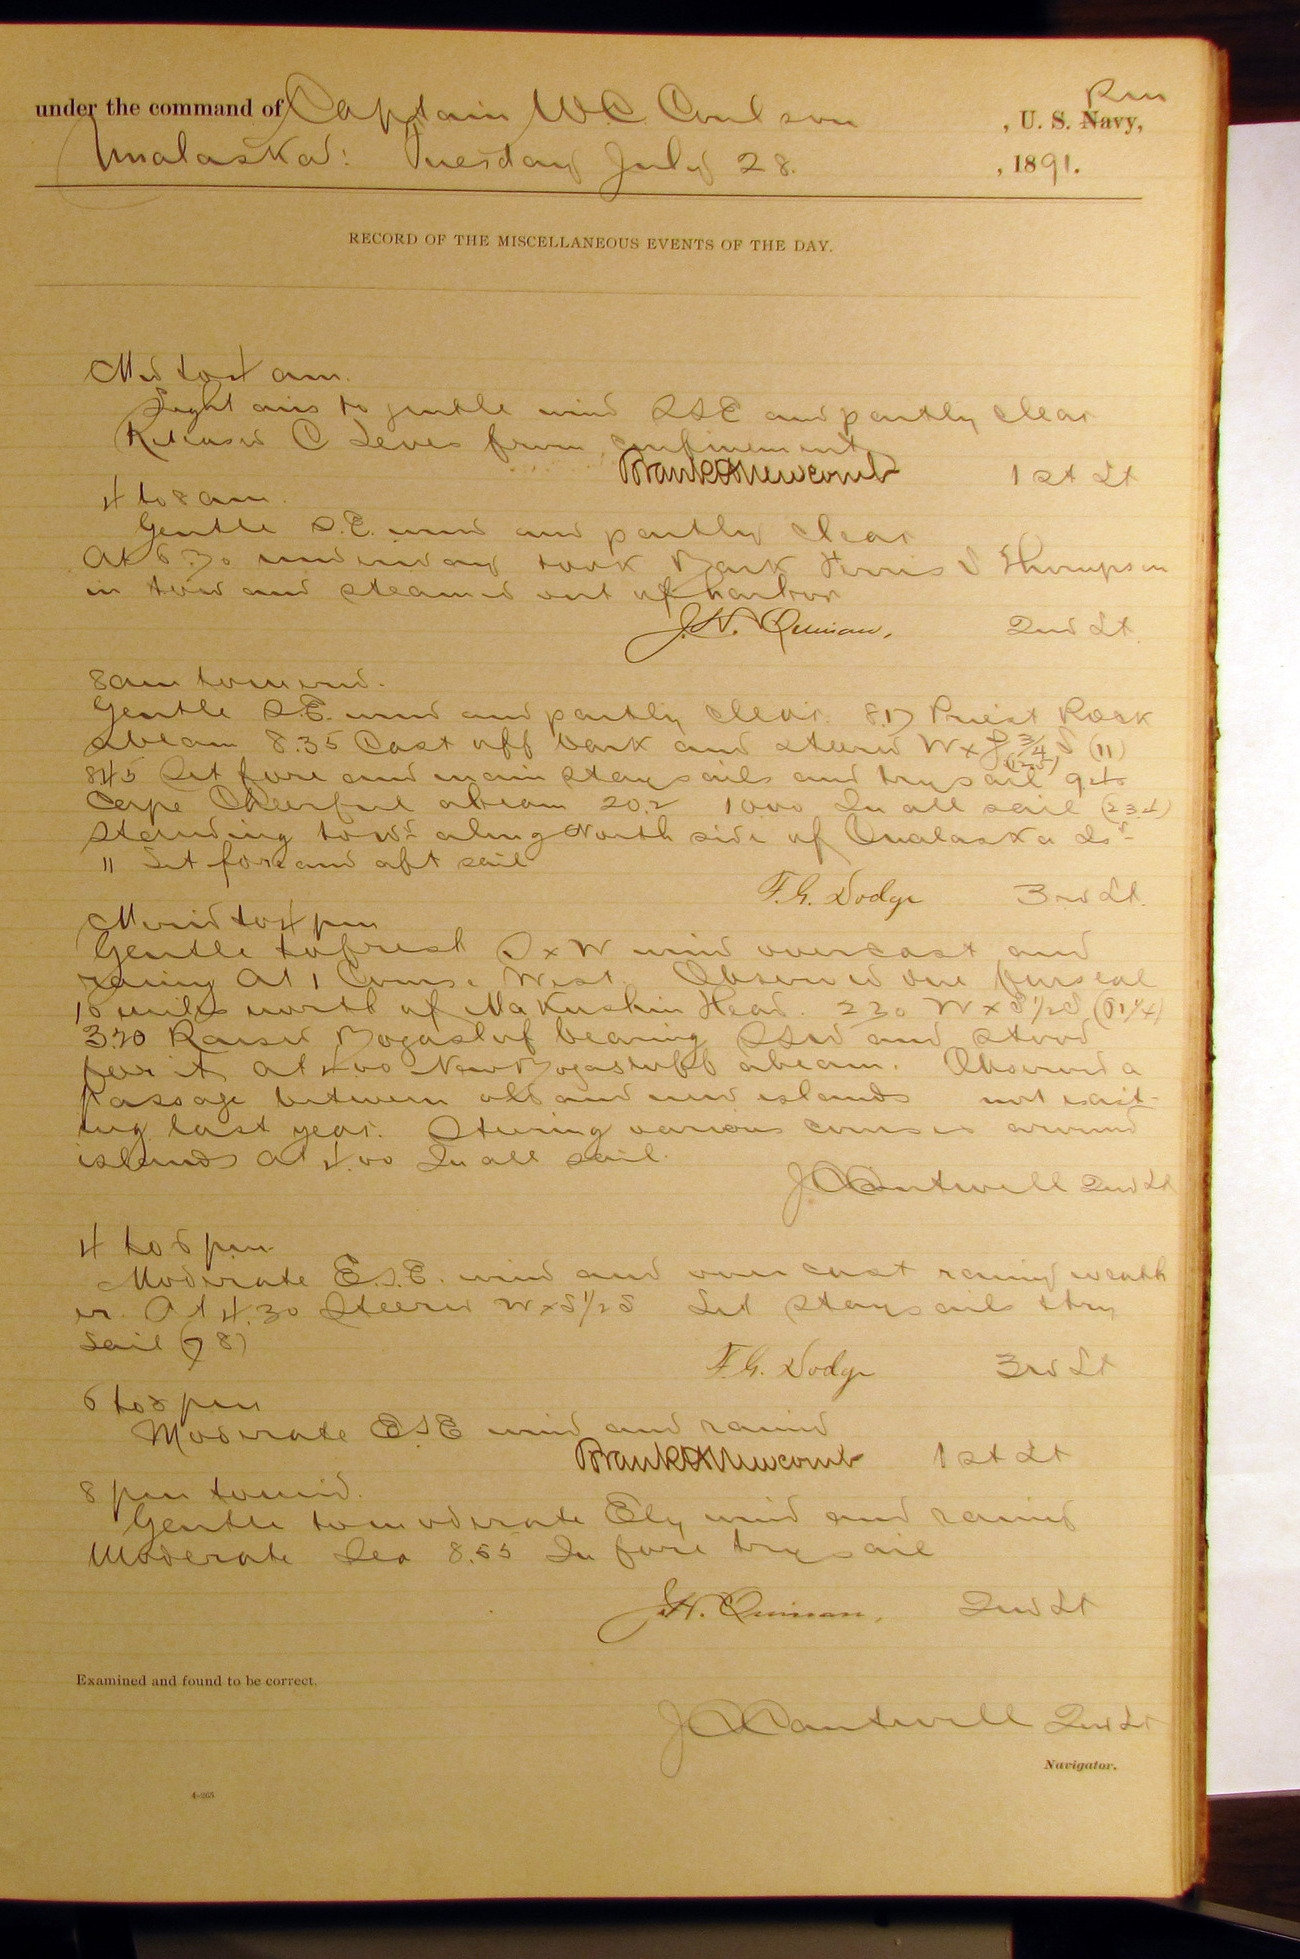 under the command of Captain W.C. Coulson , U. S. Navy, Rm
Unalaska: Tuesday July 28. , 1891.
RECORD OF THE MISCELLANEOUS EVENTS OF THE DAY.
Mid to 4 am.
Light airs to gentle wind SSE and partly clear
Released C from confinement
Frank H Newcomb 1st Lt
4 to 8 am.
Gentle S.E. wind and partly clear
At 6.30 underway took Bark Ferris S Thompson
in tow and steamed out of harbor
J.H. Quinan, 2nd Lt.
8 am to merid.
Gentle S.E. wind and partly clear. 8.17 Priest Rock
abeam 8.35 Cast off bark and steered W x S 3/4 S (11)
845 Set fore and main staysails and trysail 945
Cape Cheerful abeam 20.2 1000 In all sail (234)
Standing to wd along North side of Oualaska Isd
11 Set fore and aft sail
F.G. Dodge 3rd Lt.
Merid to 4 pm
Gentle to fresh S x W wind overcast and
rainy At 1 Course West. Observed one fur seal
10 miles north of Makushin Head. 230 W x S 1/2 S (11 1/4)
3.20 Raised Bogaslof bearing SSW and stood
for it at 4.00 New Bogasloff abeam. Observed a
Passage between old and new islands not exist-
ing last year. Steering various courses around
islands At 4.00 In all sail.
J C Cantwell 2nd Lt
4 to 6 pm
Moderate E.S.E. wind and overcast rainy weath
er. At 4.30 Steered W x S 1/2 S Set staysails & try
Sail (78)
F.G. Dodge 3rd Lt
6 to 8 pm
Moderate ESE wind and rainy
Frank H Newcomb 1st Lt
8 pm to mid.
Gentle to moderate Ely wind and rainy
Moderate Sea 8.55 In fore trysail
J.H. Quinan, 2nd Lt
Examined and found to be correct.
J C Cantwell 2nd Lt
Navigator.
4-265